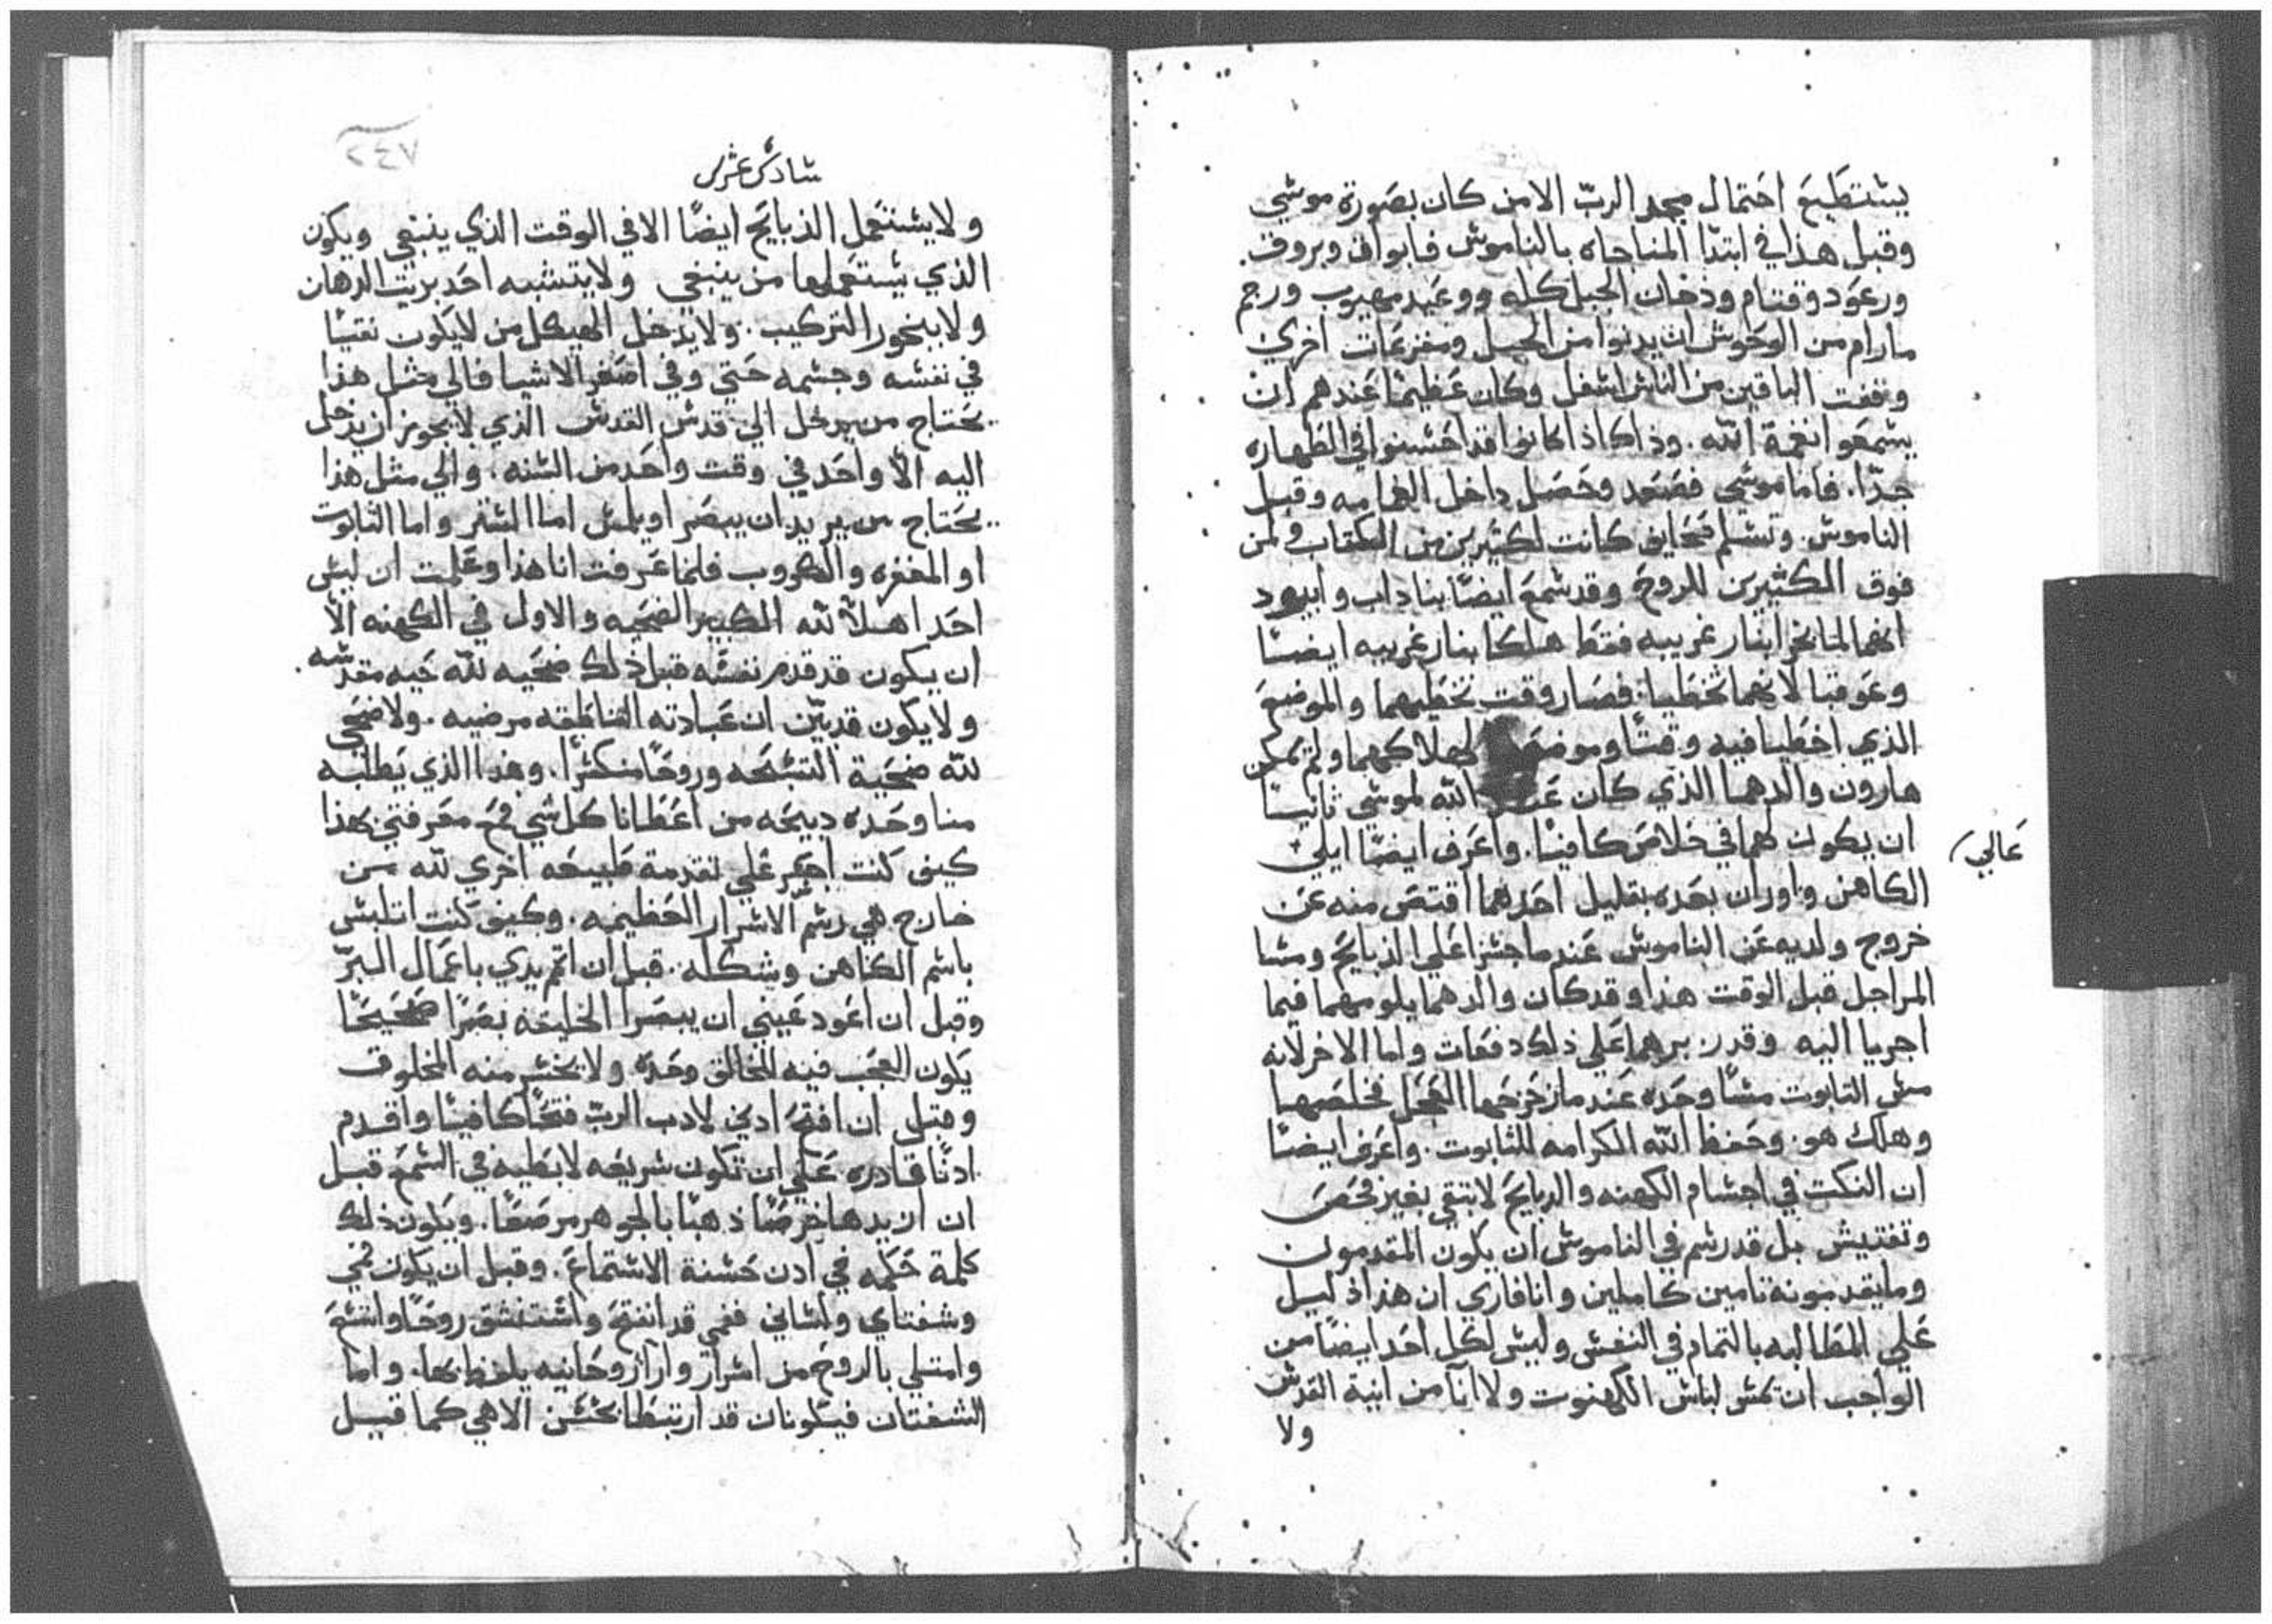 يستطيع احتمال مجد الربّ الا من كان بصورة موسي
وقبل هذا في ابتدا المناجاه بالناموس فابواق وبروق.
ورعود وقتام ودخان الجبل كله ووعيد مهيوب ورجم
مارام من الوحوش ان يدنوا من الجبل ومفزعات اخري
وقفت الباقين من الناس اسفل وكان عظيمًا عندهم ان
يسمعوا نغمة الله. وذاك اذا كانوا قد احسنوا في الطهاره
جدّا. فاما موسي فصعد وحصل داخل الغمامه وقبل
الناموس. وتسلم صحايف كانت لكثيرين من الكتاب ولمن
فوق الكثيرين للروح وقد سمع ايضًا بناداب وابيهود
انهما لما بخرا بنار غريبه فقط هلكا بنار غريبه ايضًا
وعوقبا لانهما تخطيا. فصار وقت تخطيهما والموضع
الذي اخطيا فيه وقتًا وموضعًا لهلاكهما ولم يمكن
هارون والدهما الذي كان عند الله لموسي ثانيًا
ان يكون لهما في خلاص كافيًا. واعرف ايضًا ايلي
عالي
الكاهن واوران بعده بقليل احدهما اقتص منه عن
خروج ولديه عن الناموس عندما جسرا علي الذبايح ومسا
المراجل قبل الوقت هذا وقد كان والدهما يلومهما فيما
اجريا اليه وقد زبرهما علي ذلك دفعات واما الاخر لانه
مس التابوت مسًا وحده عندما زحزحها العجل فخلصها
وهلك هو. وحفظ الله الكرامه للتابوت. واعرف ايضًا
ان النكت في اجسام الكهنه والدبايح لا تبقي بغير فحص
وتفتيش بل قد رسم في الناموس ان يكون المقدمون
وما يقدمونه تامين كاملين وانا فاري ان هذا دليل
علي المطالبه بالتمام في النفس وليس لكل احد ايضًا من
الواجب ان يمس لباس الكهنوت ولا انآ من انية القدس
ولا
٢٤٧
سادس عشر
ولا يستعمل الذبايح ايضًا الا في الوقت الذي ينبغي ويكون
الذي يستعملها من ينبغي ولا يتشبه احد بزيت الدهان
ولا ببخور التركيب. ولا يدخل الهيكل من لا يكون نقيًا
في نفسه وجسمه حتي وفي اصغر الاشيا فالي مثل هذا
يحتاج من يدخل الي قدس القدس الذي لا يجوز ان يدخل
اليه الّا واحد في وقت واحد من السنه. والي مثل هذا
يحتاج من يريد ان يبصر او يلمس اما الستر واما التابوت
او المغفره والكروب فلما عرفت انا هذا وعلمت ان ليس
احدا هلًا لله الكبير الضحيه والاول في الكهنه الّا
ان يكون قد قدم نفسه قبل ذلك ضحيه لله حيه مقدسه.
ولا يكون قد بيّن ان عبادته الناطقه مرضيه. ولا ضحي
لله ضحية التسبحه وروحًا منكسرًا. وهذا الذي يطلبه
منا وحده دبيحه من اعطانا كل شي فمع معرفتي بهذا
كيف كنت اجسر علي تقدمة طبيعه اخري لله من
خارج هي رسم الاسرار العظيمه. وكيف كنت اتلبس
باسم الكاهن وشكله. قبل ان اتم يدي باعمال البرّ
وقبل ان اعود عيني ان يبصرا الخليقه بصرًا صحيحًا
يكون العجب فيه للخالق وحده. ولا يخسر منه المخلوق
وقبل ان افتح ادني لادب الربّ فتحًا كافيًا واقدم
ادنًا قادره علي ان تكون سريعه لا بطيه في السمع قبل
ان ازيدها خرصًا ذهبًا بالجوهر مرصعًا. ويكون ذلك
كلمة حكمه في ادن حسنة الاستماع. وقبل ان يكون فمي
وشفتاي ولساني ففمي قد انفتح واستنشق روحًا واتسع
وامتلي بالروح من اسرار وارآ روحانيه يلفظ بها. واما
الشفتان فيكونان قد ارتبطا بحسن الاهي كما قيل